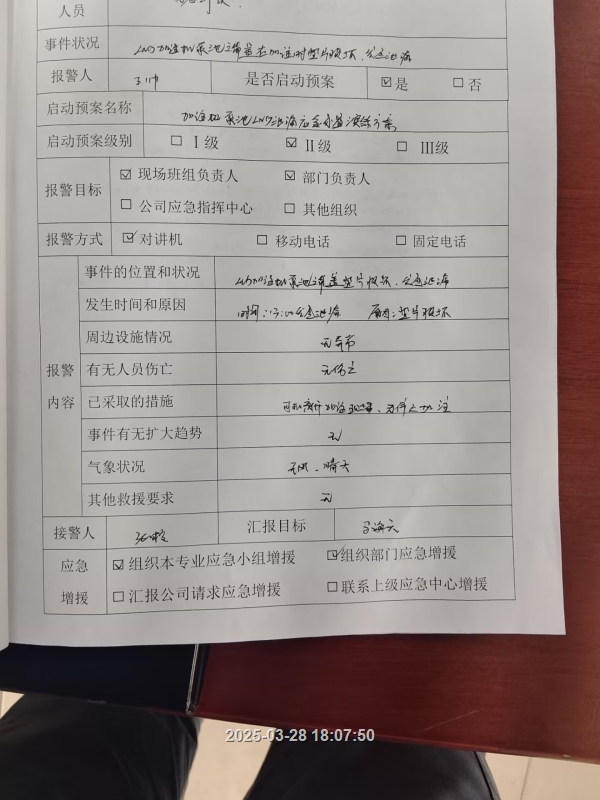 人员
事件状况 LNG加注机泵池上端盖在加注时垫片损坏、发生泄漏
报警人 是否启动预案 ☑是 □否
启动预案名称 加注机泵池LNG泄漏应急
启动预案级别 □ I级 ☑ II级 □ III级
报警目标 ☑ 现场班组负责人 ☑ 部门负责人
□ 公司应急指挥中心 □ 其他组织
报警方式 ☑ 对讲机 □ 移动电话 □ 固定电话
报警内容
事件的位置和状况 垫片损坏、发生泄漏
发生时间和原因 时间:13:00发生泄漏 原因:垫片损坏
周边设施情况 无异常
有无人员伤亡 无伤亡
已采取的措施
事件有无扩大趋势 无
气象状况 晴天
其他救援要求 无
接警人 汇报目标
应急增援
☑ 组织本专业应急小组增援 ☑组织部门应急增援
□ 汇报公司请求应急增援 □联系上级应急中心增援
2025-03-28 18:07:50